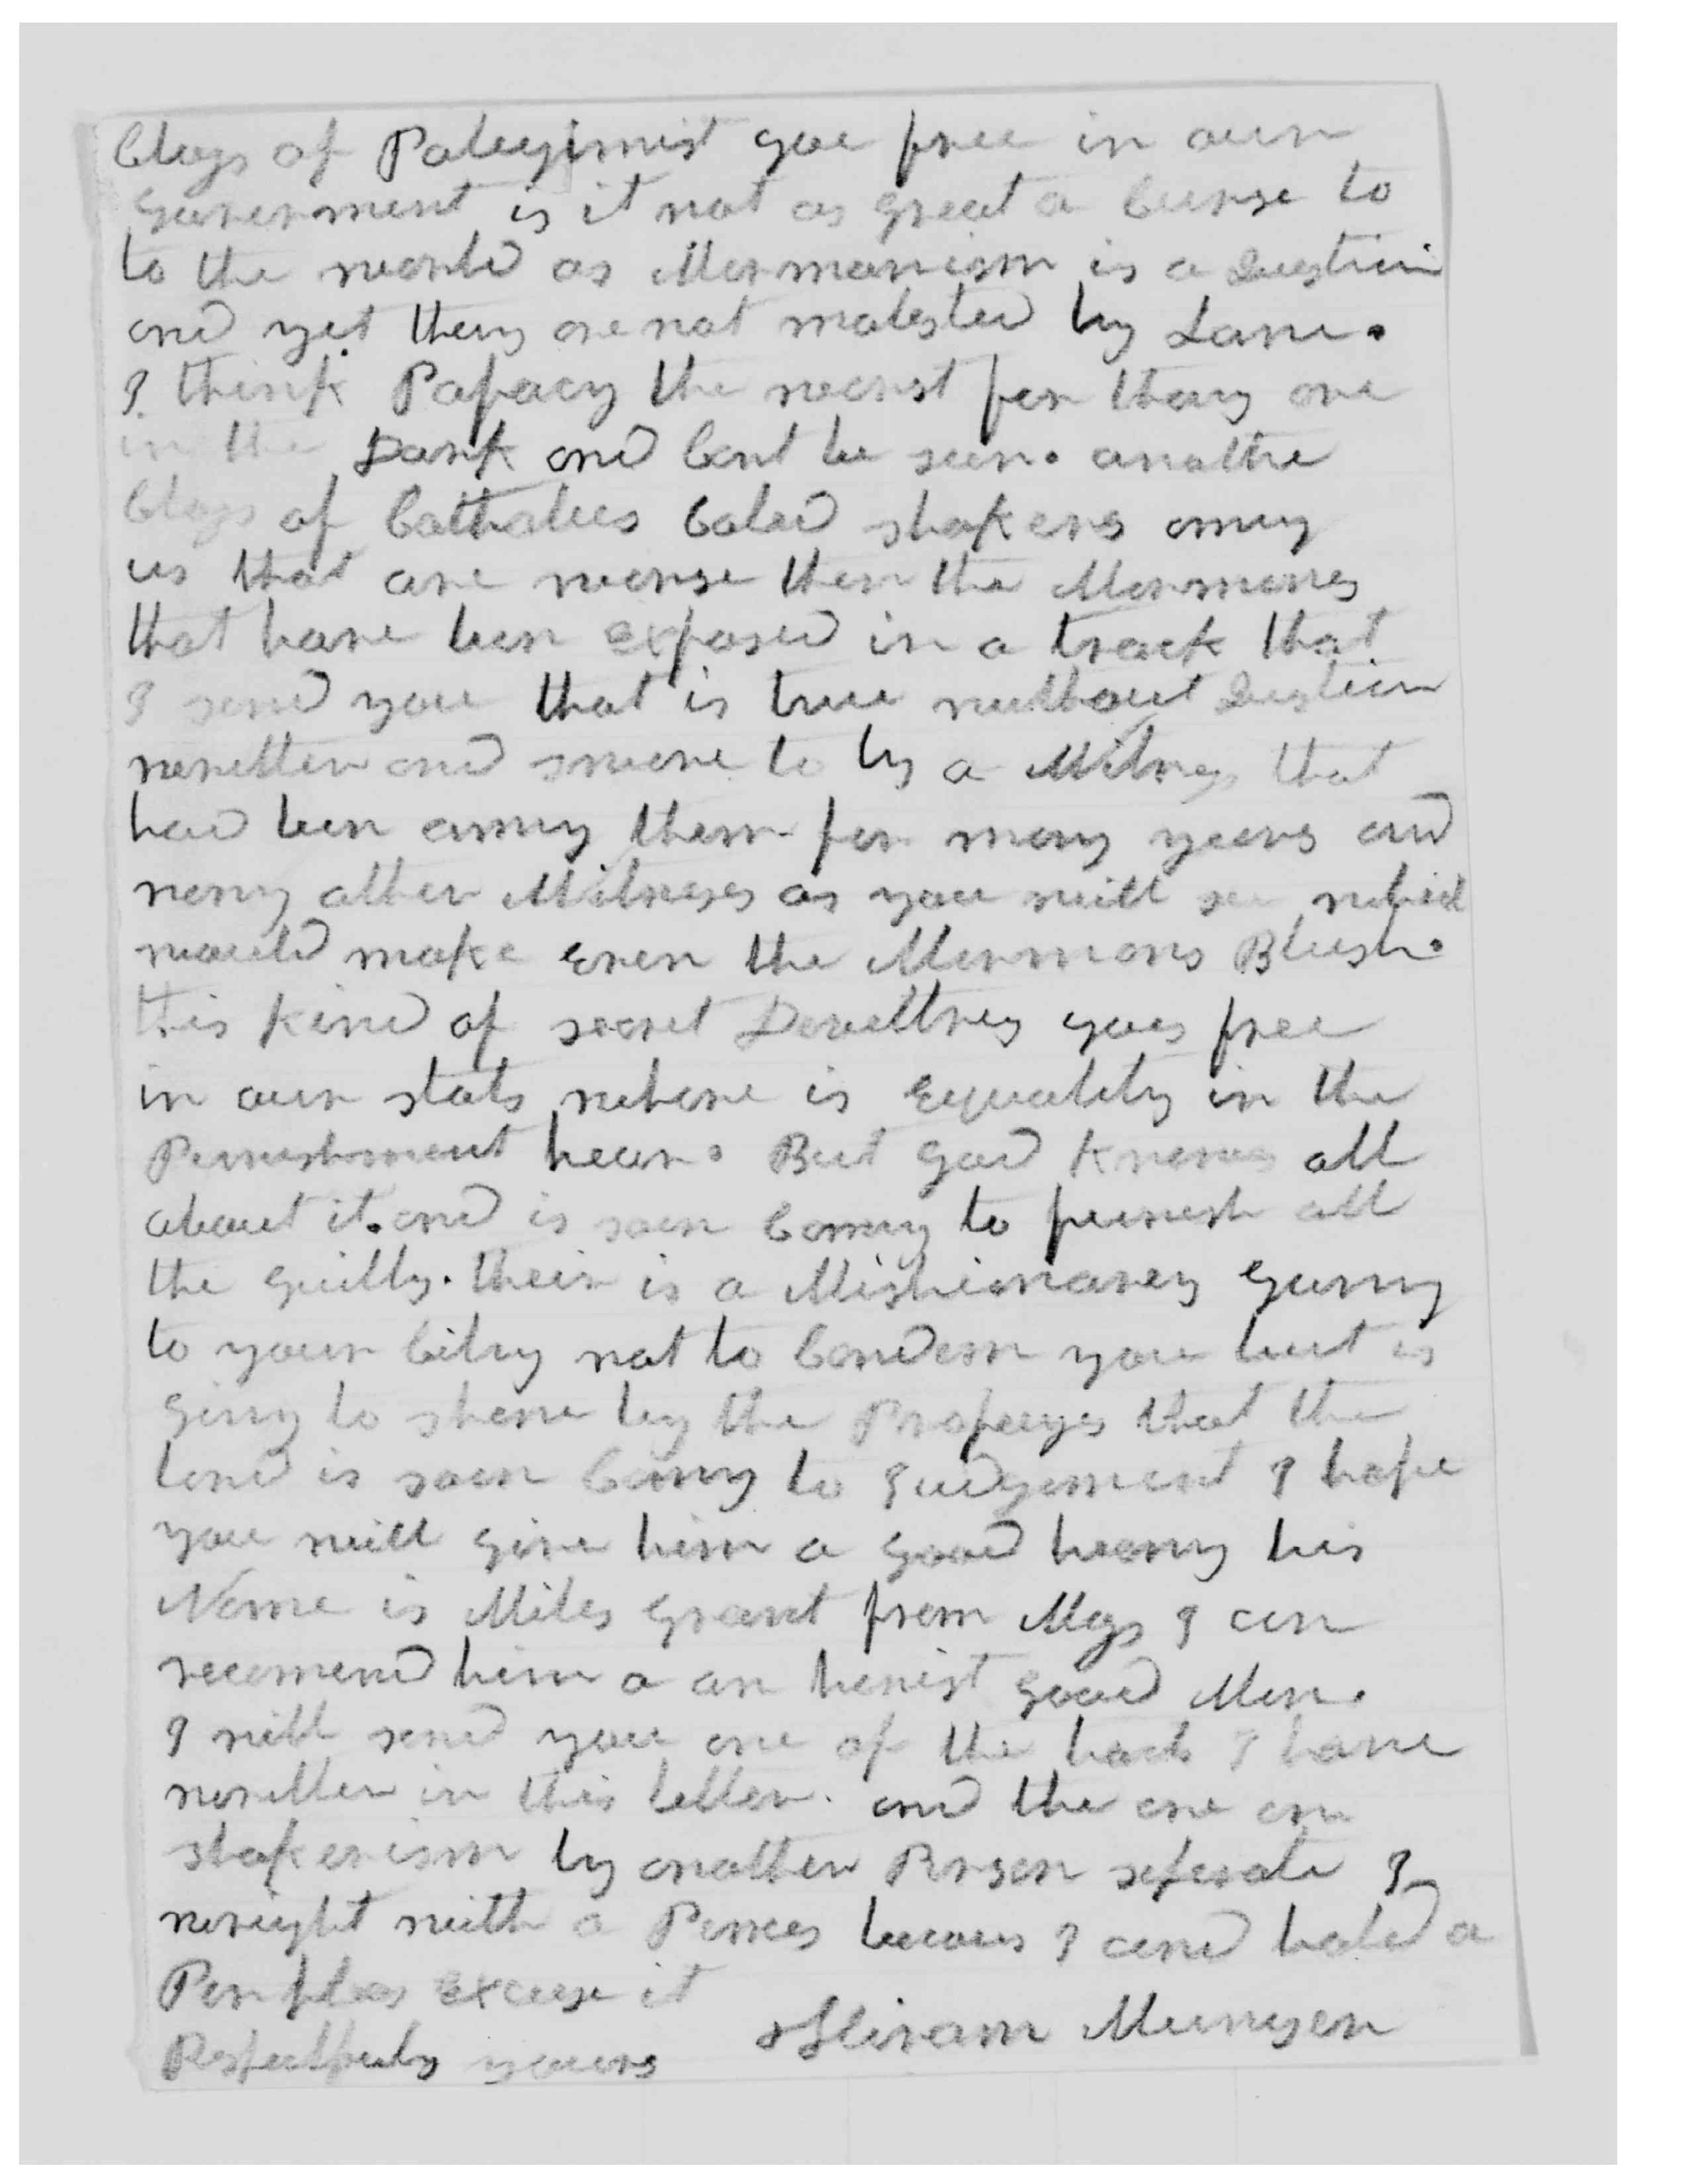 Clays of Poleygimist goe free in our
Goverenment is it not as great a Curse to
to the world as Mormanism is a Question
and yet they are not molested by Law.
I think Papacy the worst for thay are
in the Dark and Cant be seen. anothe
Clays of Cathalics Caled shakers amng
us that are worse then the Mormons
that have ben exposed in a track that
I send you that is true without Question
wwritten and swore to by a Witness that
had ben amng them for many years and
meny other Witneses as you will see which
would make Even the Mormons Blush.
this kind of secret Deveiltrey goes free
in our stats whare is Equality in the
Punnishment hear. But God Knows all
about it. and is soon Coming to punish all
the guilty. their is a Mishionarey gowing
to your City not to Condem you but is
going to shew by the Propecys that the
lord is soon Coming to Judgement I hope
you will give him a good hearing his
Name is Miles Grant from Mass I can
recomend him a an honist good Man.
I will send you one of the tracks I have
written in this letter. and the one on
shakerism by another Person seperate I
wright with a Pences becaus I cand hold a
Pen pleas Excuse it
Respectfuly yours Hiram Munger